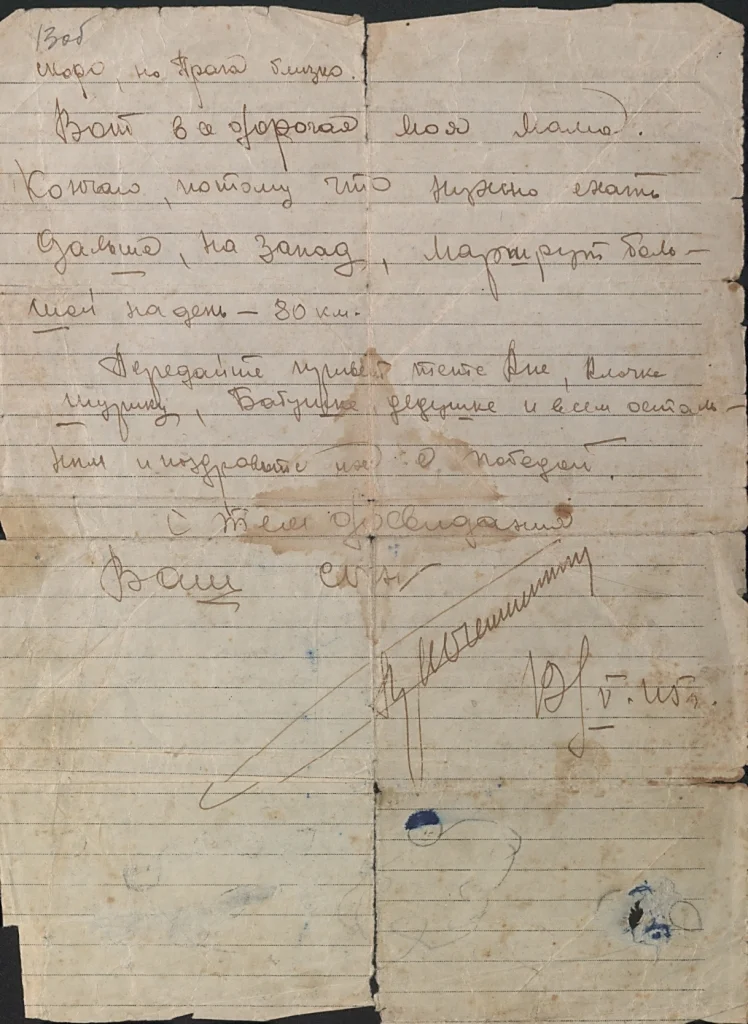 13 об
скоро, но Прага близко.
Вот все дорогая моя мама.
Кончаю, потому что нужно ехать
дальше, на запад, маршрут боль-
шой на день – 80 км.
Передайте привет тете Ане, Клочке
Шурику, Бабушке, дедушке и всем осталь-
ным и поздравьте их с победой.
С тем досвидания
Ваш сын
V.45г.